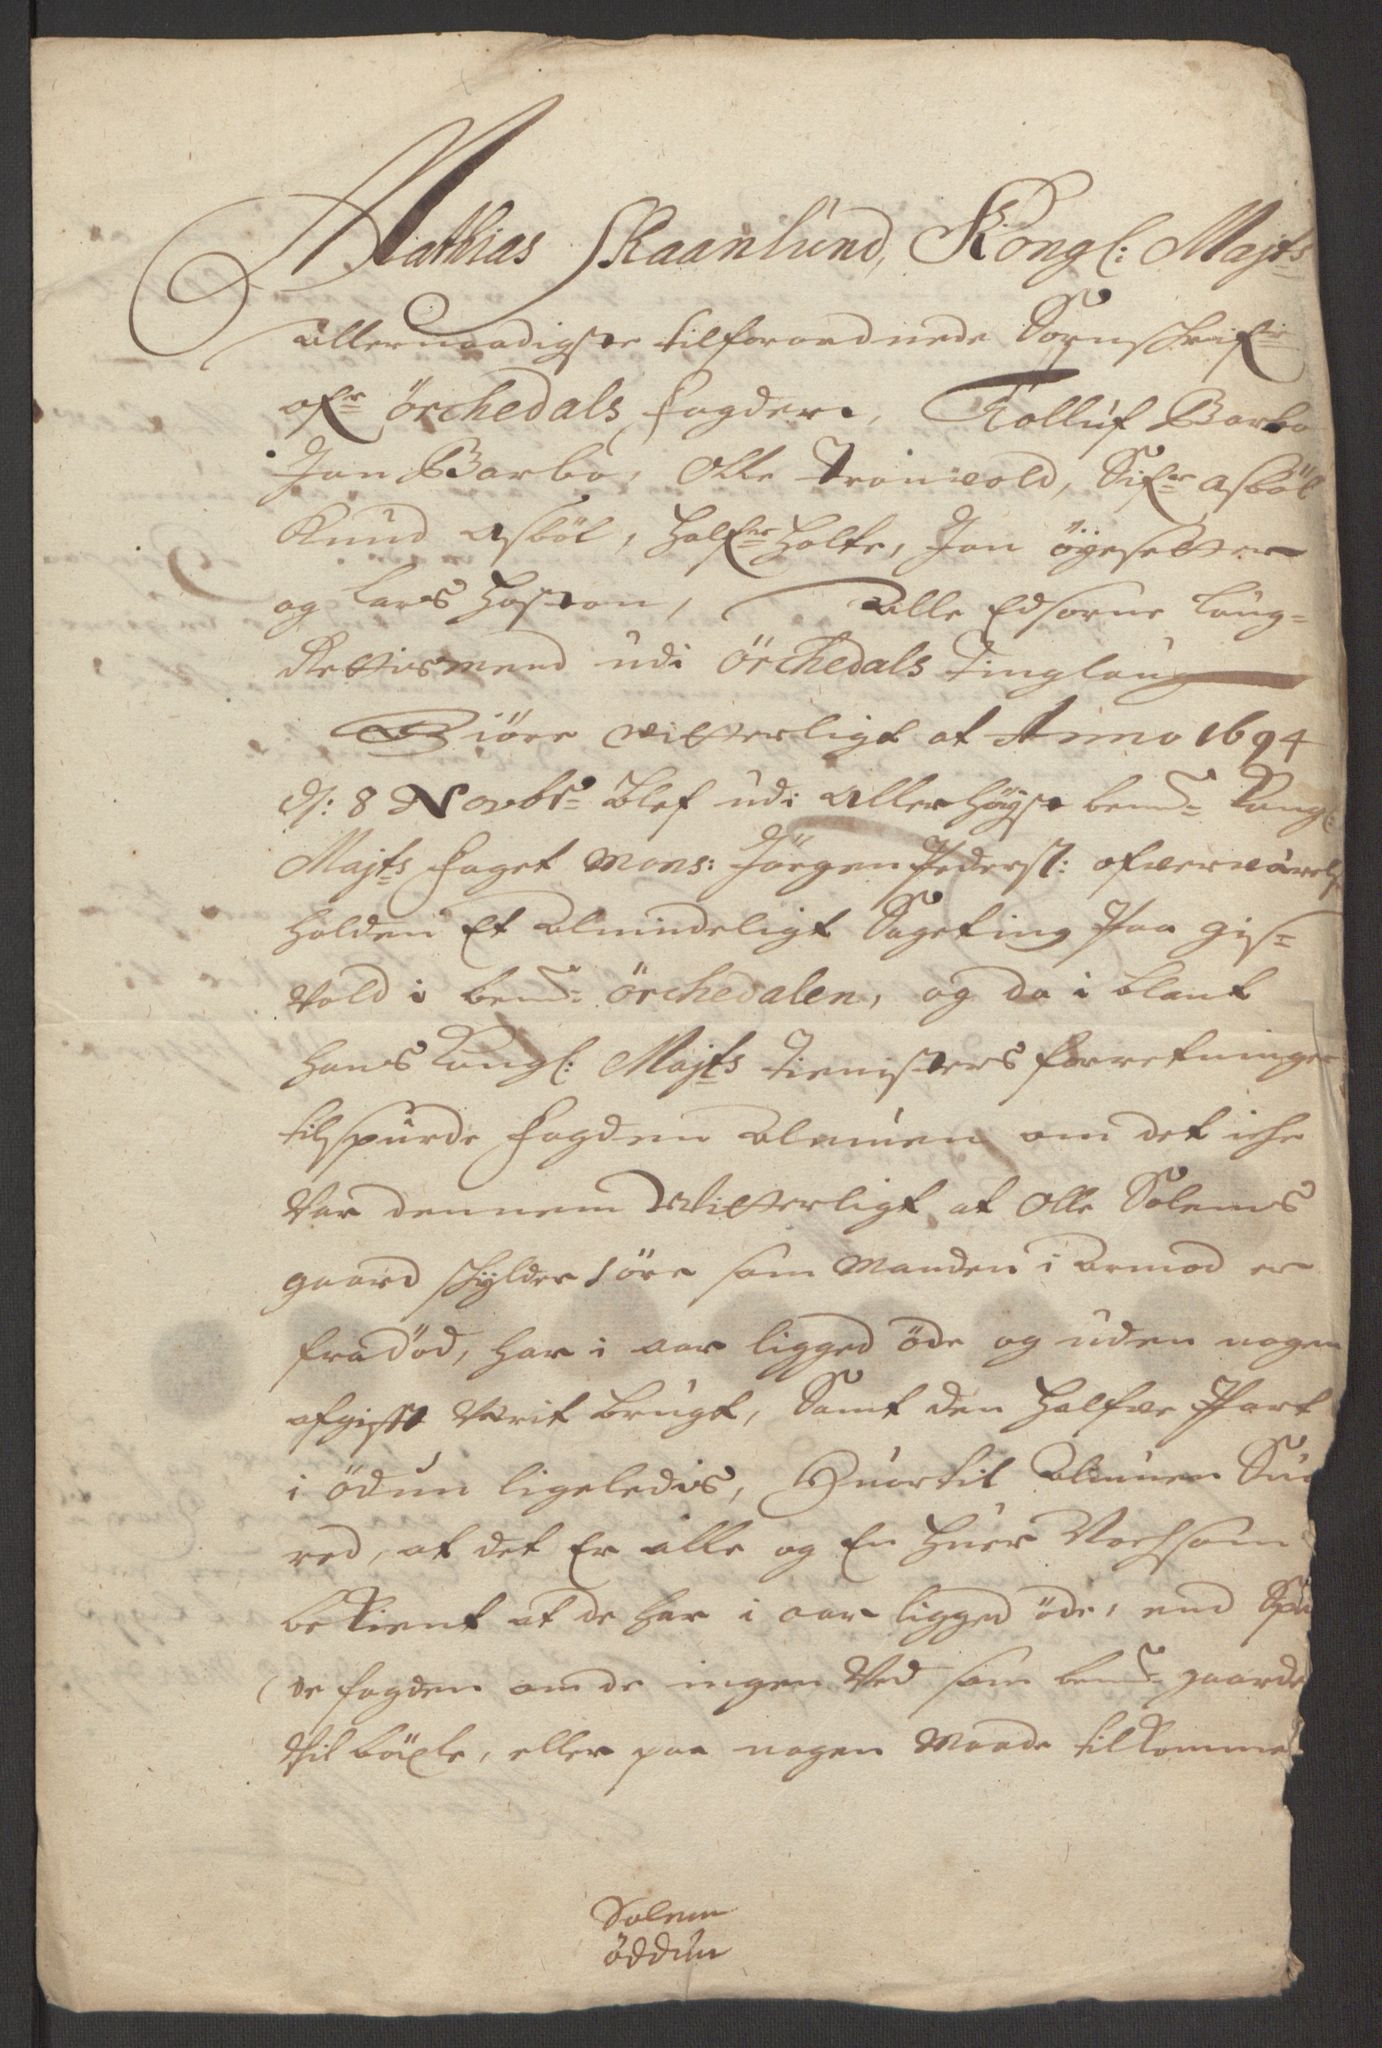 Mathias Skaanlund, Kongl: Majts
allernaadigste tilforordnede Sornschrifr
ofr Örchedals fogderi, Rolluf Barbo
Jon Barbo, Olle Tronvold, Sifr Asböl
Knud Asböl, Halfr Holte, Jon Öyesetter
og Lars Hoston, Alle Edsorne Laug-
Rettismend udi Örchedals Tinglaug
Giöre vitterligt at Anno 1694
d: 8 Novbr blef udi allerhöyst bemd Kongl:
Majts foget Mons: Jörgen Pederst: ofververelse
holden Et almindeligt Sageting paa Gis-
vold i bemd Örchedalen, og da i blant
hans Kongl: Majts Tienisters forretninger
tilspurde fogden Almuen om det iche
var dennem vitterligt at Olle Solems
gaard schylder 1 öre som Manden i armod er
fradöd, har i aar ligged öde og uden nogen
afgifft verit brugt, Samt den halfve Part
i Ödun ligeledis, Huortil Almuen Sua
red, at det Er alle og En huer Nochsom
bekient at de har i aar ligged öde, end Spu
(de fogden om de ingen Ved som bemd gaarde
vil böxle, eller paa nogen Maade tilkomme
Solem
Öddun